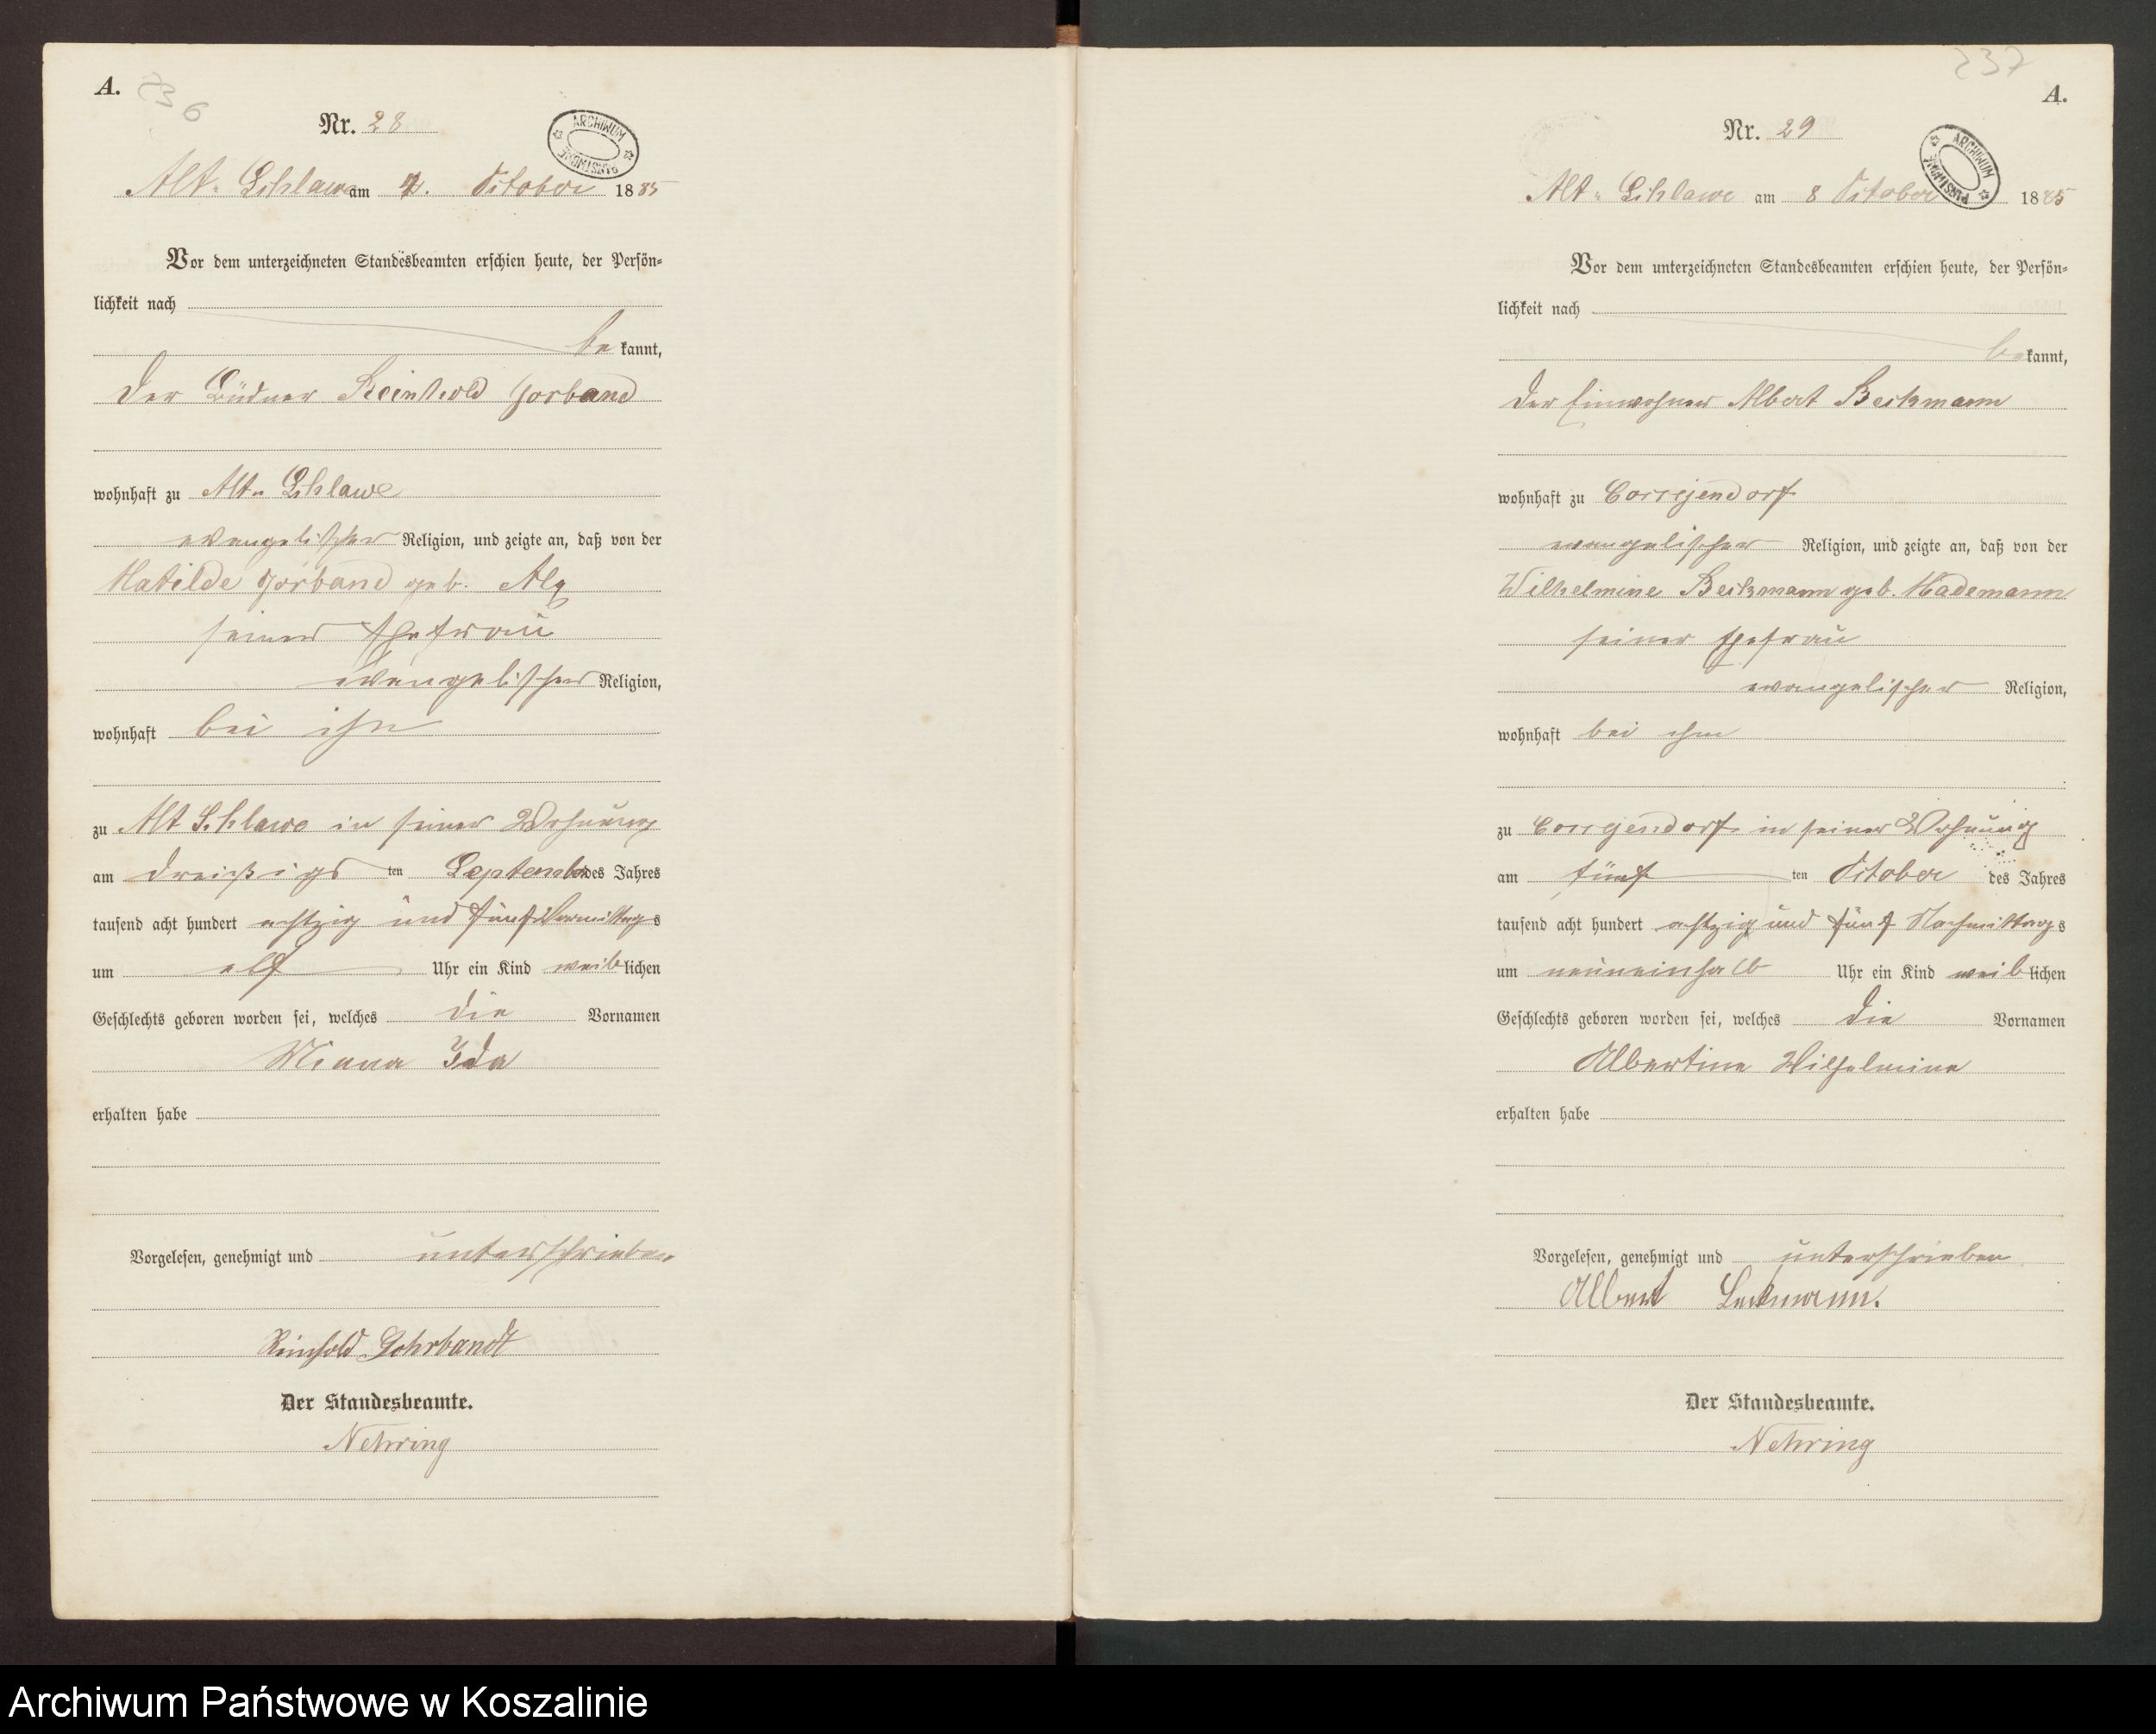 A.
236
Nr. 28
ARCHIWUM PAŃSTWOWE
Alt-Schlawe am October 1885
Vor dem unterzeichneten Standesbeamten erschien heute, der Persön-
lichkeit nach
be kannt,
der Büdner Reinhold Gorband
wohnhaft zu Alt-Schlawe
evangelischer Religion, und zeigte an, daß von der
Matilde Gorband geb.
seiner Ehefrau
evangelischer Religion,
wohnhaft bei ihm
zu Alt Schlawe in seiner Wohnung
am dreißigs ten September des Jahres
tausend acht hundert achtzig und fünf Vormittags
um elf Uhr ein Kind weiblichen
Geschlechts geboren worden sei, welches die Vornamen
Minna Ida
erhalten habe
Vorgelesen, genehmigt und unterschrieben
Reinhold Gohrbandt
Der Standesbeamte.
Nehring
237
A.
Nr. 29
ARCHIWUM PAŃSTWOWE
Alt-Schlawe am 8 October 1885
Vor dem unterzeichneten Standesbeamten erschien heute, der Persön-
lichkeit nach
bekannt,
der Einwohner Albert Beckmann
wohnhaft zu Coccejendorf
evangelischer Religion, und zeigte an, daß von der
Wilhelmine Beckmann geb. Hademann
seiner Ehefrau
evangelischer Religion,
wohnhaft bei ihm
zu Coccejendorf in seiner Wohnung
am fünf ten October des Jahres
tausend acht hundert achtzig und fünf Nachmittags
um neuneinhalb Uhr ein Kind weiblichen
Geschlechts geboren worden sei, welches die Vornamen
Albertine Wilhelmine
erhalten habe
Vorgelesen, genehmigt und unterschrieben
Albert Beckmann.
Der Standesbeamte.
Nehring
Archiwum Państwowe w Koszalinie